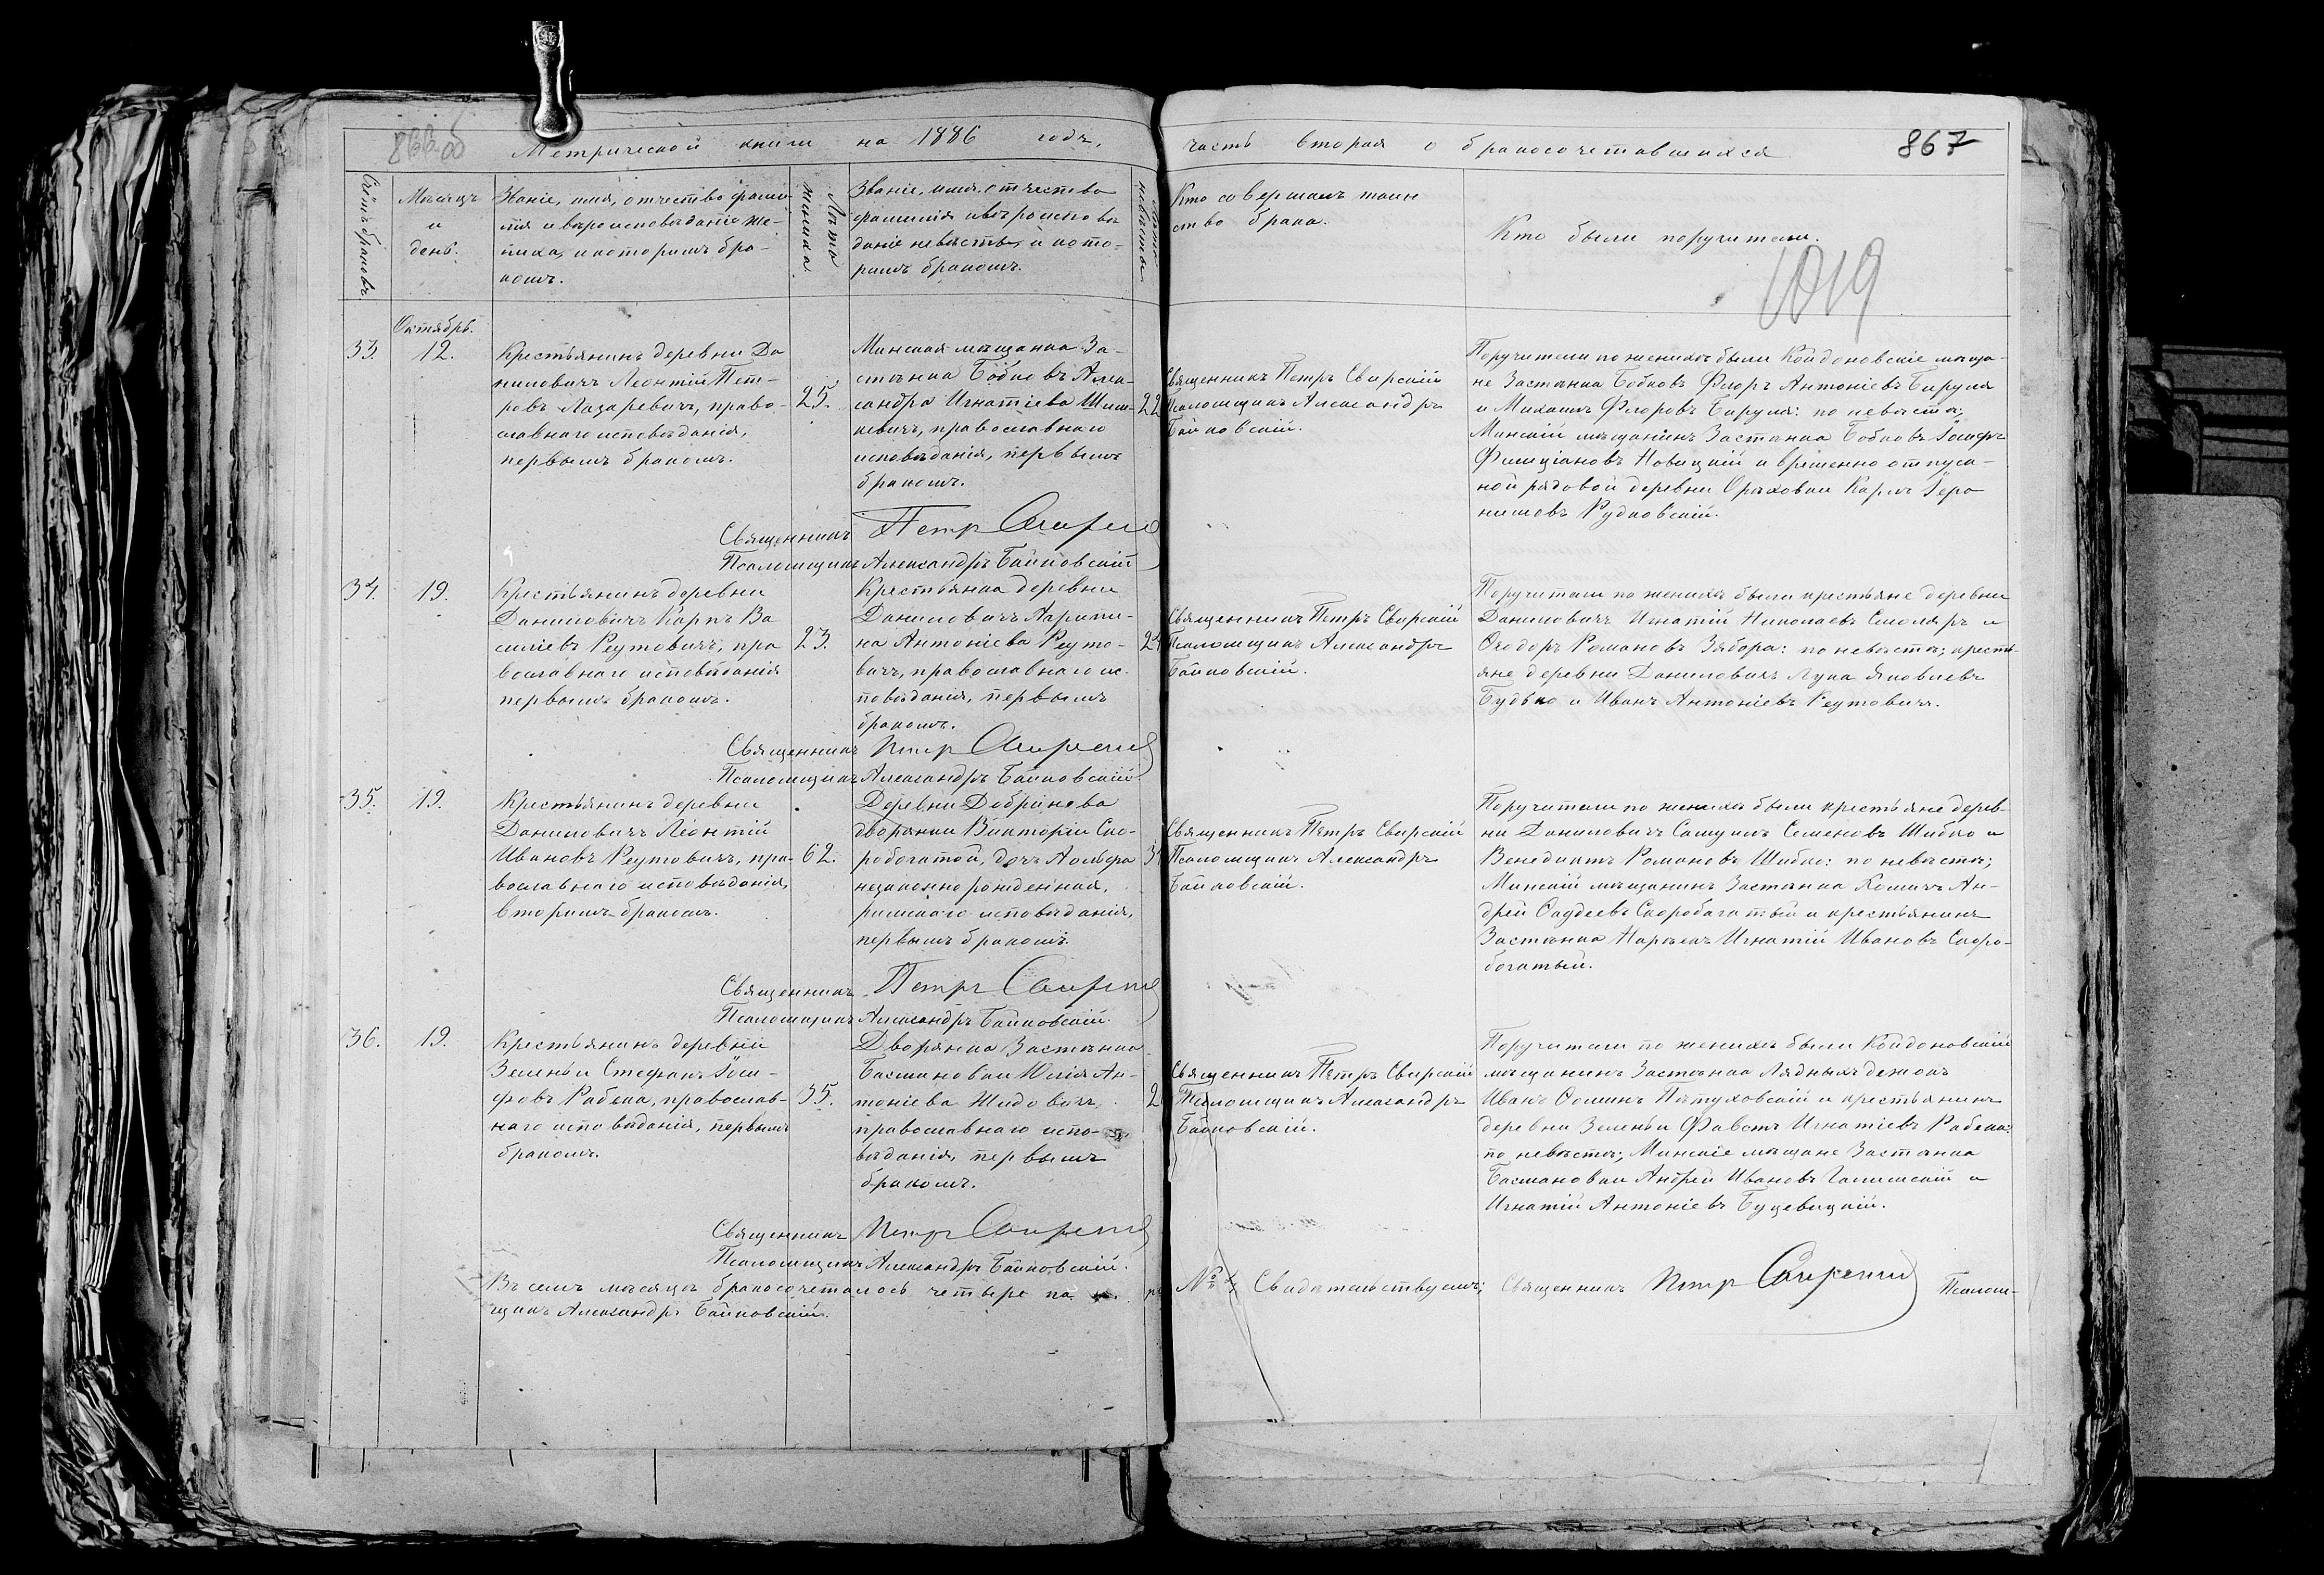 866 об
Метрической книги на 1886 годъ, часть вторая о бракосочетавшихся
867
Счётъ браковъ
Мѣсяцъ и день.
Званіе, имя, отчество, фами-
лія и вѣроисповѣданіе же-
ниха, и которымъ бра-
комъ.
Лѣта жениха.
Званіе, имя, отчество
фамилія и вѣроисповѣ
даніе невѣсты, и кото-
рымъ бракомъ.
Лѣта невѣсты
Кто совершалъ таин
ство брака.
Кто были поручители.
1019
Октябрь.
33.
12.
Крестьянинъ деревни Да
ниловичъ Леонтій Пет-
ровъ Лазаревичъ, право-
славнаго исповѣданія,
первымъ бракомъ.
25.
Минская мѣщанка За-
стѣнка Бобковъ Алек-
сандра Игнатіева Шиш-
кевичъ, православнаго
исповѣданія, первымъ
бракомъ.
22
Священникъ Петръ Свирскій
Псаломщикъ Александръ
Байковскій.
Поручители по женихѣ были Койдановскіе мѣща-
не Застѣнка Бобковъ Флоръ Антоніевъ Бируля
и Михаилъ Флоровъ Бируля: по невѣстѣ;
Минскій мѣщанинъ Застѣнка Бобковъ Іосифъ
Фелиціановъ Новицкій и временно отпуск-
ной рядовой деревни Оряховки Карлъ Іеро
нимовъ Рудковскій.
Священникъ Петр Свирскій
Псаломщикъ Александръ Байковскій
34.
19.
Крестьянинъ деревни
Даниловичъ Карпъ Ва
силіевъ Реутовичъ, пра
вославнаго исповѣданія
первымъ бракомъ.
23.
Крестьянка деревни
Даниловичъ Агрипи-
на Антоніева Реуто-
вичъ, православнаго ис-
повѣданія, первымъ
бракомъ.
Священникъ Петръ Свирскій
Псаломщикъ Александръ
Байковскій.
Поручители по женихѣ были крестьяне деревни
Даниловичъ Игнатій Николаевъ Смоляръ и
Ѳеодоръ Романовъ Зябора: по невѣстѣ; кресть-
яне деревни Даниловичъ Лука Яковлевъ
Будько и Иванъ Антоніевъ Реутовичъ.
Священникъ Петр Свирскій
Псаломщикъ Александръ Байковскій.
35.
19.
Крестьянинъ деревни
Даниловичъ Леонтій
Ивановъ Реутовичъ, пра-
вославнаго исповѣданія,
вторымъ бракомъ.
62.
Деревни Добринева
дворянки Викторіи Ско-
робогатой, дочь
незаконнорожденная,
римскаго исповѣданія,
первымъ бракомъ.
Священникъ Петръ Свирскій
Псаломщикъ Александръ
Байковскій.
Поручители по женихѣ были крестьяне дерев-
ни Даниловичъ Самуилъ Семеновъ Шибко и
Венедиктъ Романовъ Шибко: по невѣстѣ;
Минскій мѣщанинъ Застѣнка Ан-
дрей Ѳаддеевъ Скоробагатый и крестьянинъ
Застѣнка Игнатій Ивановъ Скоро-
богатый.
Священникъ Петръ Свирскій
Псаломщикъ Александръ Байковскій.
36.
19.
Крестьянинъ деревни
Зеленьи Стефанъ Іоси-
фовъ Рабека, православ-
наго исповѣданія, первымъ
бракомъ.
35.
Дворянка Застѣнка
Басмановки Юлія Ан-
тоніева Шидовичъ,
православнаго испо-
вѣданія, первымъ
бракомъ.
Священникъ Петръ Свирскій
Псаломщикъ Александръ
Байковскій.
Поручители по женихѣ были Койдановскій
мѣщанинъ Застѣнка
Иванъ Ѳоминъ Пѣтуховскій и крестьянинъ
деревни Зеленьи Фавстъ Игнатіевъ Рабека:
по невѣстѣ; Минскіе мѣщане Застѣнка
Басмановки Андрей Ивановъ Галимскій и
Игнатій Антоніевъ Буцевицкій.
Священникъ Петръ Свирскій
Псаломщикъ Александръ Байковскій.
Въ семъ мѣсяцѣ бракосочеталось четыре па ръ № 4 Свидѣтельствуемъ; Священникъ Петр Свирскій Псалом-
щикъ Александръ Байковскій.